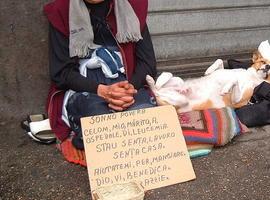 SONNO POVERA
CELOM, MIO, MÁRITO, A
OSPEDALE, DI, LEUCEMIA.
STAU SENTA, LAVORO
SENTA CASA.
AIUTATEMI, PER, MANGIARE.
DIO, VI, BENEDICA.
GRAZZIE.